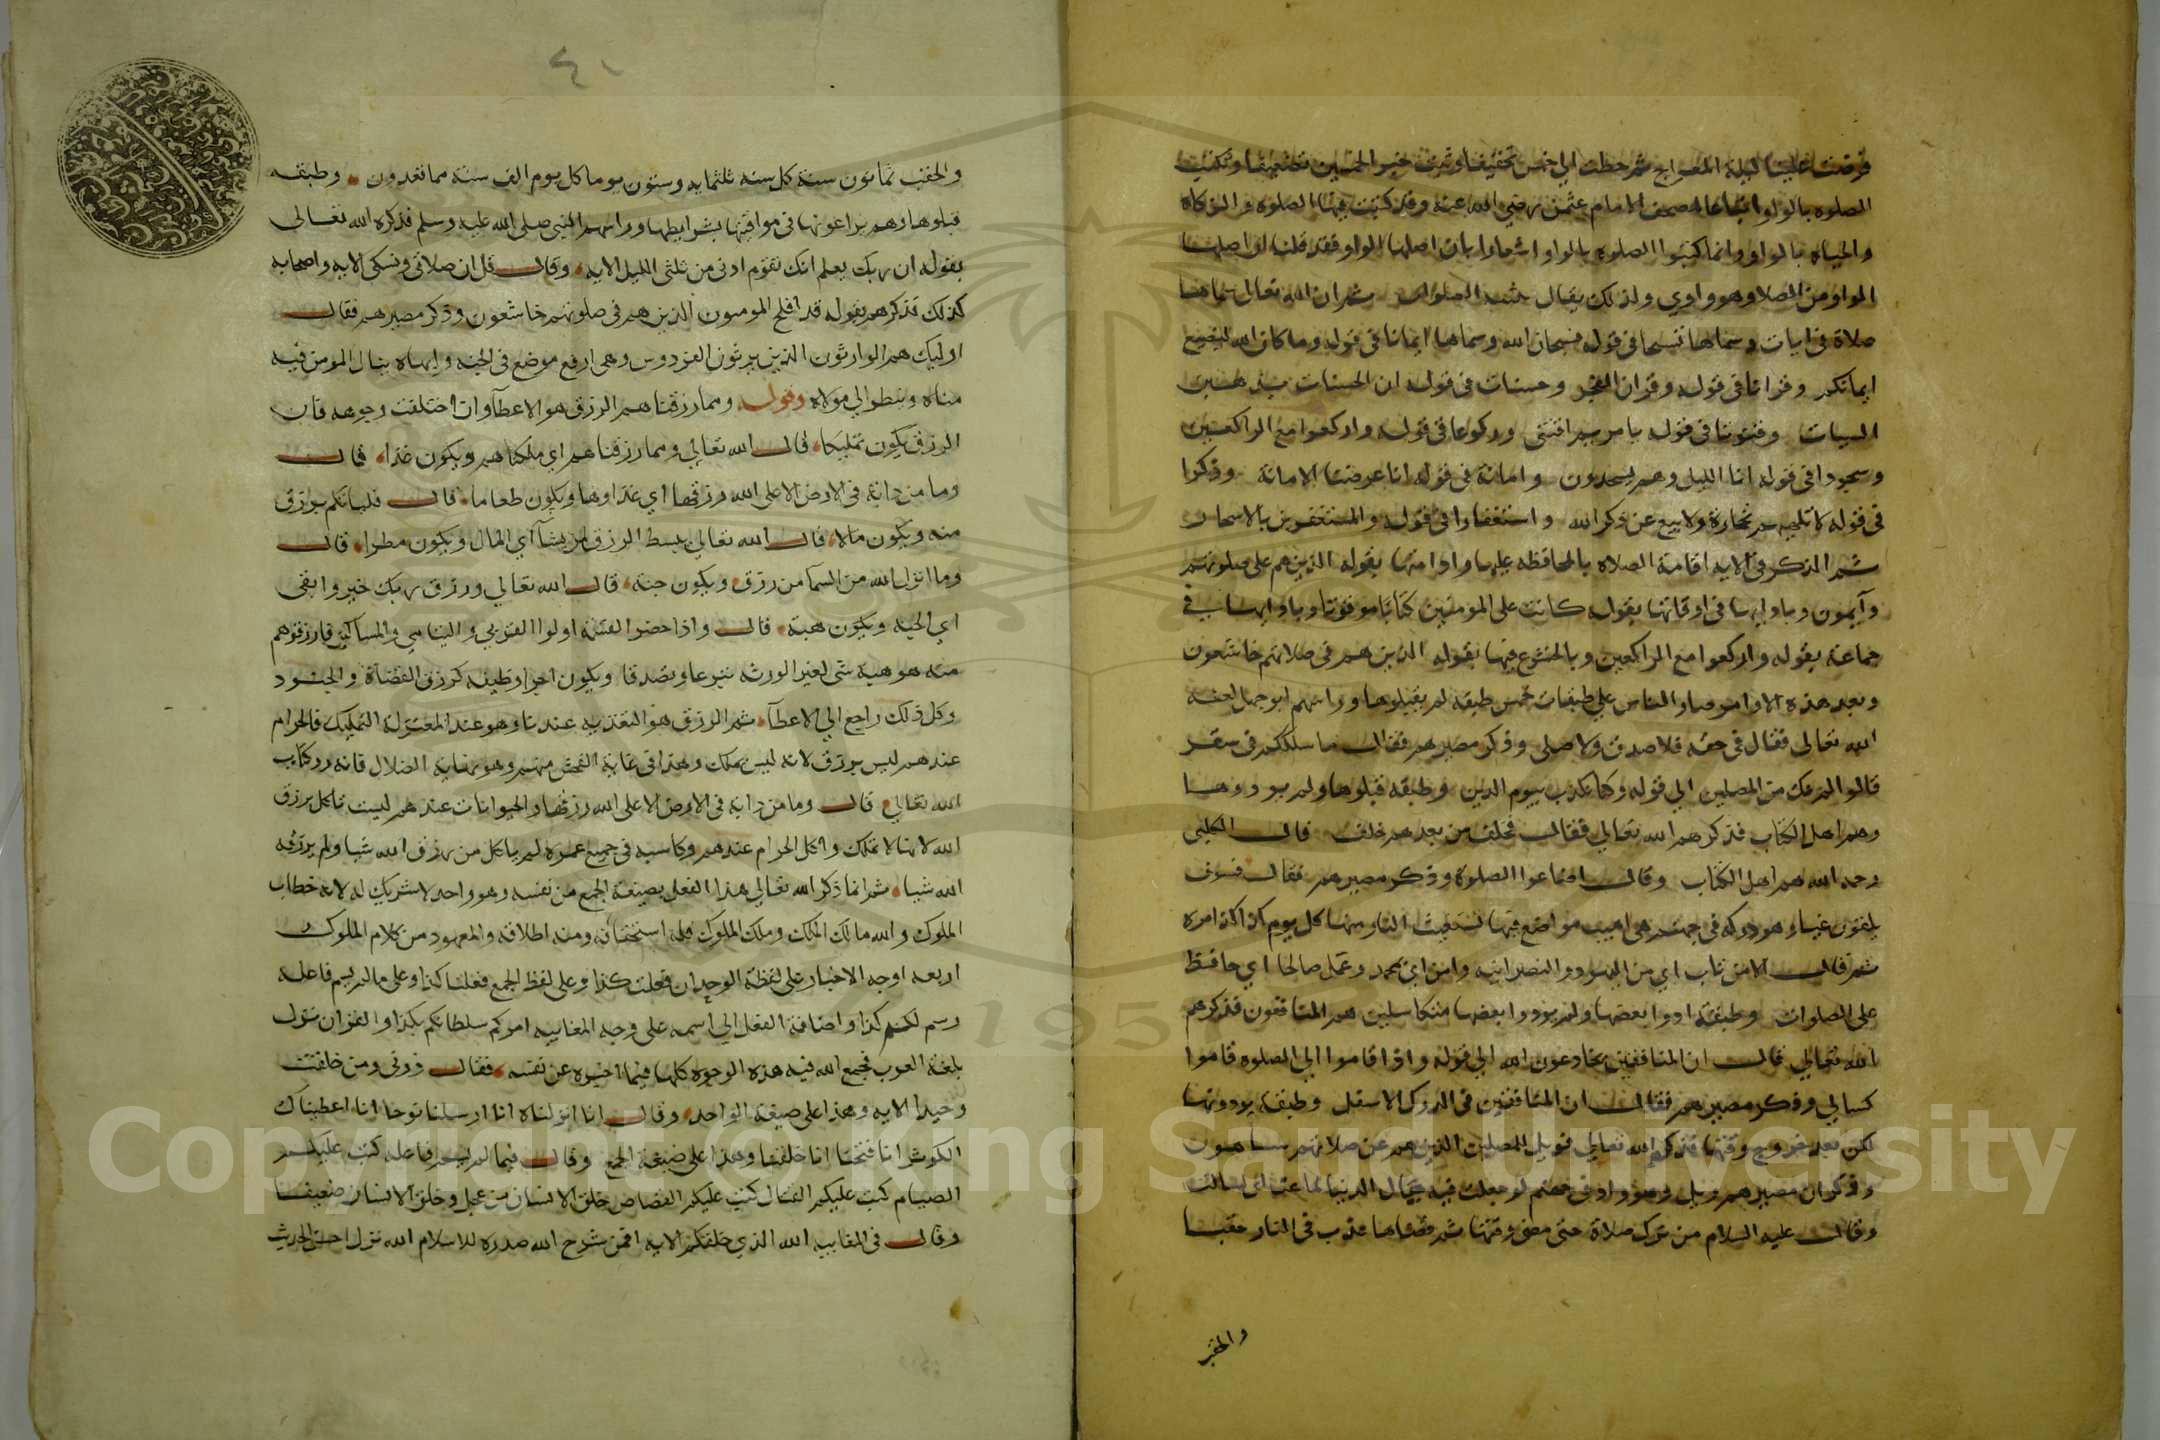 فرضت علينا ليلة المعراج ثم حطت الي خمس تخفيفا وثبت خير الخمسين تضعيفا وتكتب
الصلوه بالواو اتباعا لمصحف الامام عثمن رضي الله عنه وقد كتبت فيها الصلوه والزكاه
والحياه بالواو وانما كتبوا الصلوه بالواو اشعارا بان اصلها الواو فقد قلنا ان اصلها
الواو من الصلا وهو واوي ولذلك يقال الصلوات ثم ان الله تعالى سماها
صلاة في ايات وسماها تسبيحا في قوله فسبحان الله وسماها ايمانا في قوله وما كان الله ليضيع
ايمانكم وقرانا في قوله وقران الفجر وحسنات في قوله ان الحسنات يذهبن
السيات وقنوتا في قوله يا مريم اقنتي وركوعا في قوله واركعوا مع الراكعين
وسجودا في قوله انا الليل وهم يسجدون وامانة في قوله انا عرضنا الامانة وذكرا
في قوله لا تلهيهم تجارة ولا بيع عن ذكر الله واستغفارا في قوله والمستغفرين بالاسحار
ثم المذكور في الايه اقامة الصلاه بالمحافظه عليها وادامتها بقوله الذين هم على صلوتهم
دآيمون وبادايها في اوقاتها بقوله كانت على المومنين كتابا موقوتا وبادايها في
جماعة بقوله واركعوا مع الراكعين وبالخشوع فيها بقوله الذين هم في صلاتهم خاشعون
وبعد هذه الاوامر صار الناس على طبقات خمس طبقه لم يقبلوها وراسهم ابو جهل لعنه
الله تعالى فقال في حقه فلا صدق ولا صلى وذكر مصيرهم فقال ما سلككم في سقر
قالوا لم نك من المصلين الي قوله وكنا نكذب بيوم الدين وطبقه قبلوها ولم يودوها
وهم اهل الكتاب فذكرهم الله تعالي فقال فخلف من بعدهم خلف قال الكلبي
رحمه الله هم اهل الكتاب وقال اضاعوا الصلوة وذكر مصيرهم فقال فسوف
يلقون غيا وهو دركه في جهنم هي اهيب مواضع فيها تستغيث النار منها كل يوم كذا كذا مره
ثم قال الا من تاب اي من اليهوديه والنصرانيه وامن اي بمحمد وعمل صالحا اي حافظ
على الصلوات وطبقة ادوا بعضها ولم يودوا بعضها متكاسلين هم المنافقون فذكرهم
الله تعالي قال ان المنافقين يخادعون الله الي قوله واذا قاموا الي الصلوه قاموا
كسالي وذكر مصيرهم فقال ان المنافقين في الدرك الاسفل وطبقة يودونها
لكن بعد خروج وقتها فذكرهم الله تعالي فويل للمصلين الذين هم عن صلاتهم ساهون
وذكر ان مصيرهم ويل وهو واد في جهنم لو جعلت فيه جبال الدنيا لسالت
وقال عليه السلام من ترك صلاة حتى مضى وقتها ثم قضاها عذب في النار حقبا
والحقب
٤١
والحقب ثمانون سنة كل سنه ثلثمايه وستون يوما كل يوم الف سنة مما تعدون وطبقه
قبلوها وهم يراعونها في مواقيتها بشرايطها وراسهم النبي صلى الله عليه وسلم فذكره الله تعالى
بقوله ان ربك يعلم انك تقوم ادنى من ثلثي الليل الايه وقال قل ان صلاتي ونسكي الايه واصحابه
كذلك فذكرهم بقوله قد افلح المومنون الذين هم في صلوتهم خاشعون وذكر مصيرهم فقال
اوليك هم الوارثون الذين يرثون الفردوس وهي ارفع موضع في الجنه وابهاه ينال المومن فيه
مناه وينظر الي مولاه وقوله ومما رزقناهم الرزق هو الاعطآ وان اختلفت وجوهه فان
الرزق يكون تمليكا قال الله تعالي ومما رزقناهم اي ملكناهم ويكون غذا قال
وما من دابة في الارض الا على الله رزقها اي غذاوها ويكون طعاما قال فلياتكم برزق
منه ويكون مالا قال الله تعالي يبسط الرزق لمن يشآ اي المال ويكون مطرا قال
وما انزل الله من السما من رزق ويكون جنة قال الله تعالي ورزق ربك خير وابقى
اي الجنه ويكون هبة قال واذا حضر القسمة اولوا القربي واليتامي والمساكين فارزقوهم
منه هو هبة شي لغير الورثه تبرعا وتصدقا ويكون اجرا وظيفه كرزق القضاة والجنود
وكل ذلك راجع الي الاعطآ ثم الرزق هو التغذيه عندنا وهو عند المعتزله التمليك فالحرام
عندهم ليس برزق لانه ليس بملك وهذا في غاية الفحش منهم وهو نهاية الضلال فانه رد كتاب
الله تعالي قال وما من دابه في الارض الا على الله رزقها والحيوانات عندهم ليست تاكل برزق
الله لانها لا تملك واكل الحرام عندهم وكاسبه في جميع عمره لم ياكل من رزق الله شيا ولم يرزقه
الله شيا ثم انما ذكر الله تعالي هذا الفعل بصيغة الجمع من نفسه وهو واحد لا شريك له لانه خطاب
الملوك والله مالك الملك وملك الملوك فله استحقاقه ومنه اطلاقه والمعهود من كلام الملوك
اربعه اوجه الاخبار على لفظة الوحدان فعلت كذا وعلى لفظ الجمع فعلنا كذا وعلى ما لم يسم فاعله
رسم لكم كذا واضافة الفعل الي اسمه على وجه المغايبه امركم سلطانكم بكذا والقران نزل
بلغة العرب فجمع الله فيه هذه الوجوه كلها فيما اخبره عن نفسه فقال ذرني ومن خلقت
وحيدا الايه وهذا على صيغة الواحد وقال انا انزلناه انا ارسلنا نوحا انا اعطيناك
الكوثر انا فتحنا انا خلقنا وهذا على صيغة الجمع وقال فيما لم يسم فاعله كتب عليكم
الصيام كتب عليكم القتال كتب عليكم القصاص خلق الانسان من عجل وخلق الانسان ضعيفا
وقال في المغايبه الله الذي خلقكم الايه افمن شرح الله صدره للاسلام الله نزل احسن الحديث
1957
Copyright © King Saud University